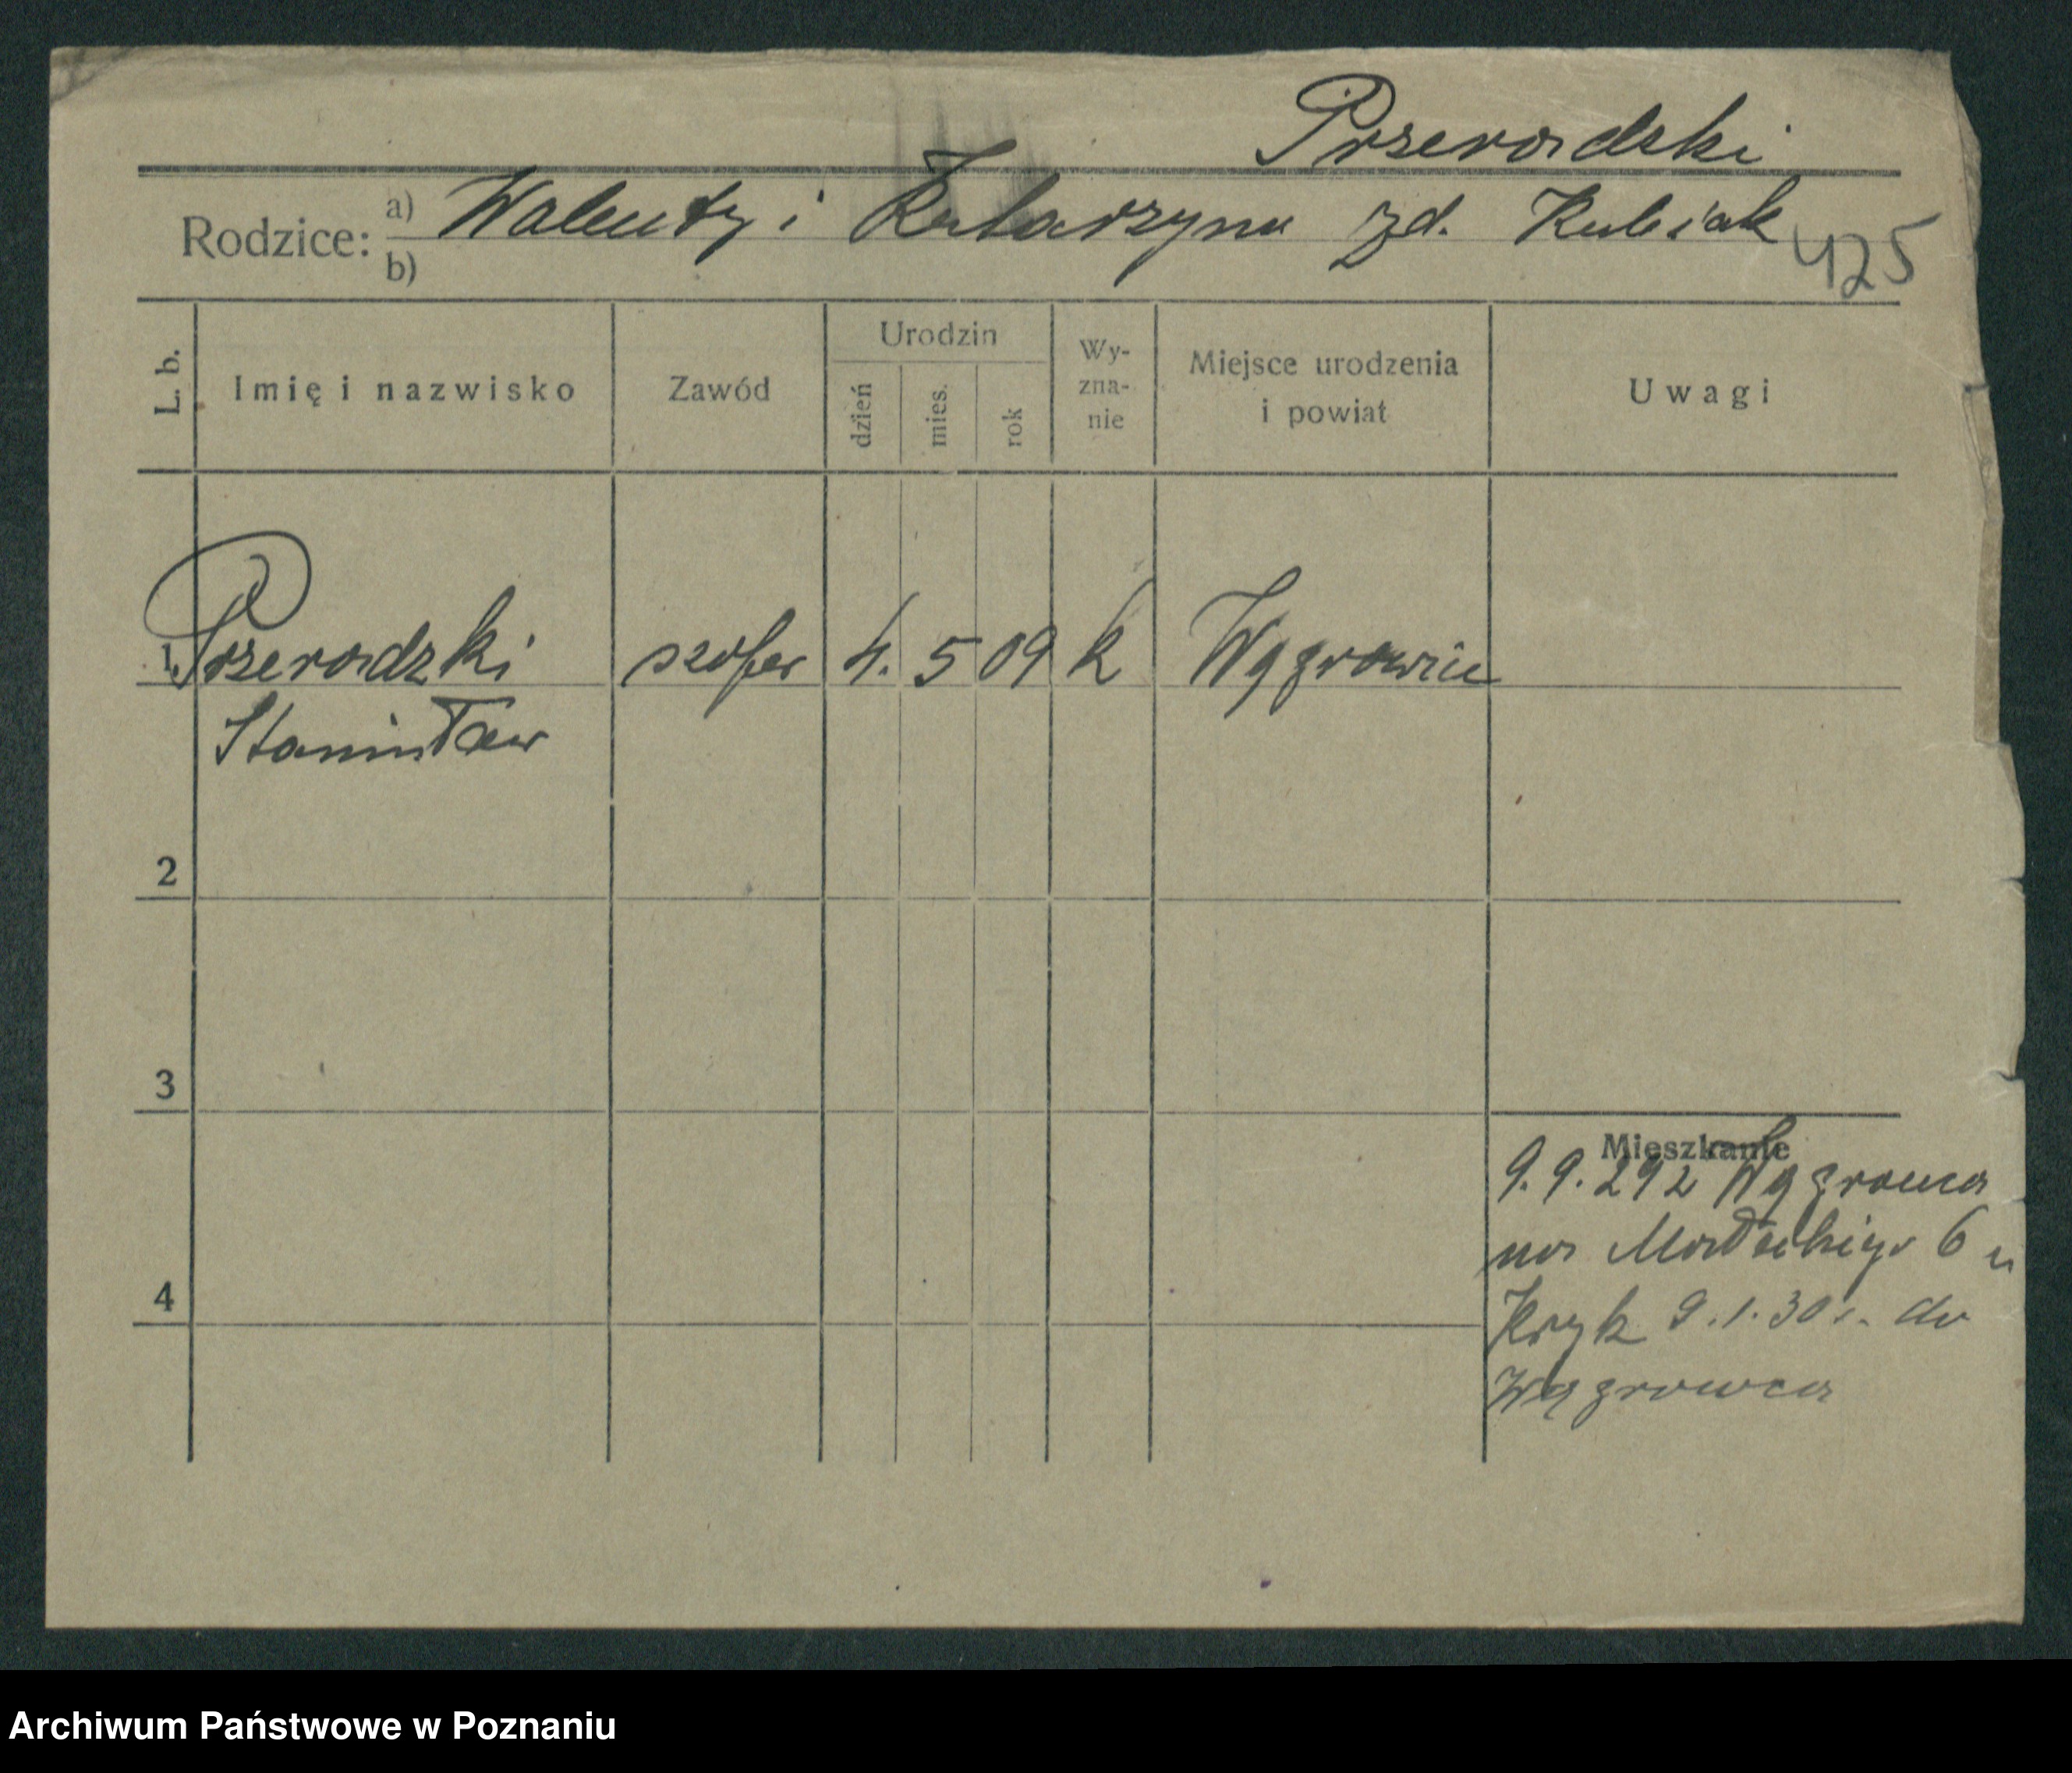 Przeradzki
Rodzice: a) Walenty i Katarzyna zd. Kubiak
b)
425
L. b. Imię i nazwisko Zawód Urodzin dzień mies. rok Wy-zna-nie Miejsce urodzenia i powiat Uwagi
1 Przeradzki szofer 4. 5 09 k Wągrowiec
Stanisław
2
3
Mieszkanie
9.9.29 z Wągrowca
na 6 u
4
9.1.30 r. do
Wągrowca
Archiwum Państwowe w Poznaniu